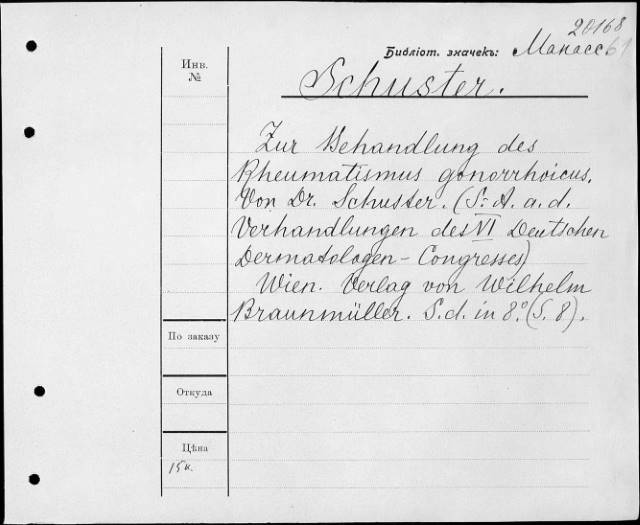 20168
Библіот. значекъ: Манасс 61
Инв.
№
Schuster.
Zur Behandlung des
Rheumatismus gonorrhoicus.
Von Dr. Schuster. (S. A. a. d.
Verhandlungen des VI Deutschen
Dermatologen-Congresses)
Wien. Verlag von Wilhelm
Braunmüller. S.d. in 8.° (S. 8).
По заказу
Откуда
Цѣна
15 к.